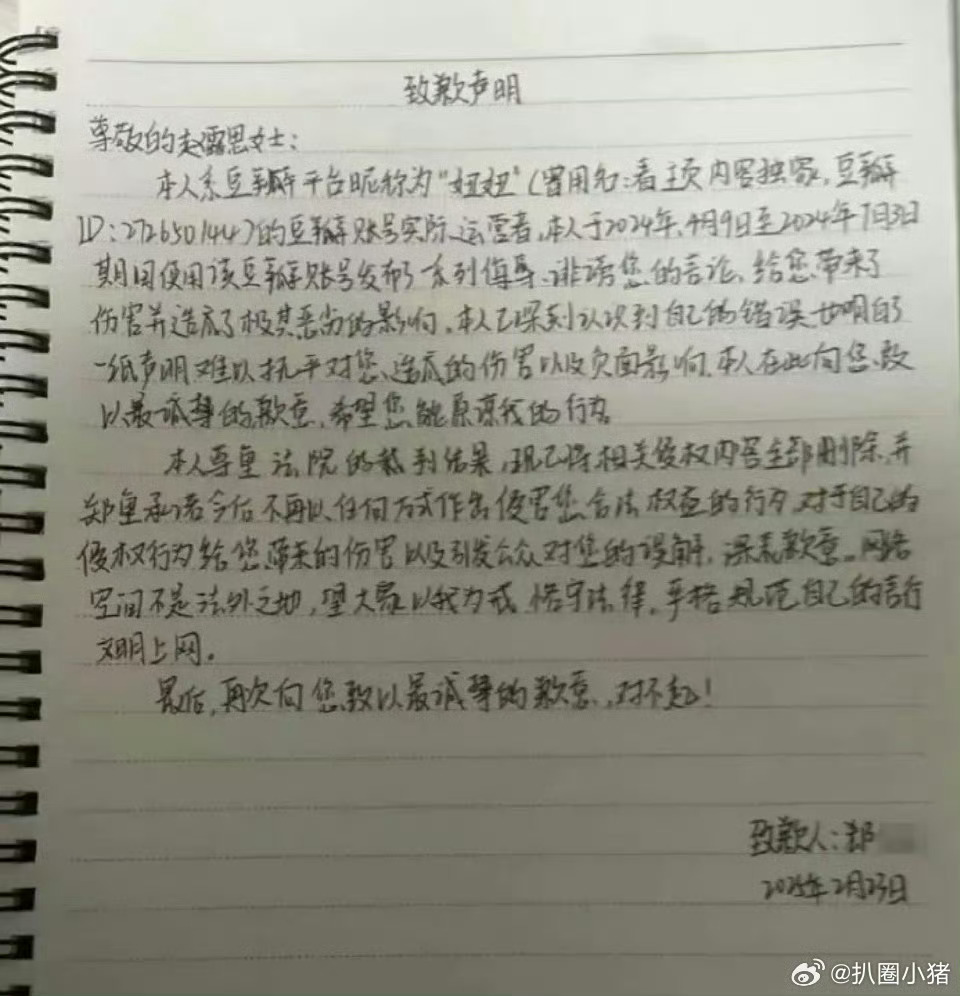 致歉声明
尊敬的赵露思女士:
本人系豆瓣平台昵称为"妞妞"(曾用名:看主页内容独家,豆瓣
ID:272650144)的豆瓣账号实际运营者,本人于2024年4月9日至2024年7月3日
期间使用该豆瓣账号发布了系列侮辱、诽谤您的言论、给您带来了
伤害并造成了极其恶劣的影响。本人已深刻认识到自己的错误也明白了
一纸声明难以抚平对您造成的伤害以及负面影响,本人在此向您致
以最诚挚的歉意,希望您能原谅我的行为
本人尊重法院的裁判结果,现已将相关侵权内容全部删除,并
郑重承诺今后不再以任何方式作出侵害您合法权益的行为,对于自己的
侵权行为给您带来的伤害以及引发公众对您的误解,深表歉意。网络
空间不是法外之地,望大家以我为戒,恪守法律,严格规范自己的言行
文明上网。
最后,再次向您致以最诚挚的歉意,对不起!
致歉人:郑
2025年2月23日
@扒圈小猪